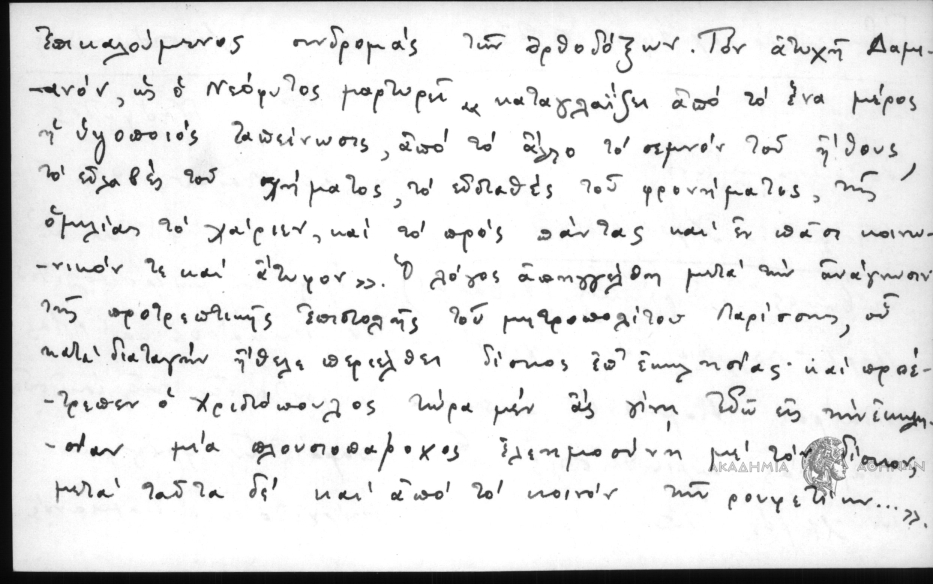 ἐπικαλούμενος συνδρομάς τῶν ὀρθοδόξων. Τόν ἀτυχῆ Δαμι-
-ανόν, ὡς ὁ Νεόφυτος μαρτυρεῖ « καταγλαΐζει ἀπό τό ἕνα μέρος
ἡ ὑψοποιός ταπείνωσις, ἀπό τό ἄλλο τό σεμνόν τοῦ ἤθους,
τό εὐλαβές τοῦ σχήματος, τό εὐσταθές τοῦ φρονήματος, τῆς
ὁμιλίας τό χαρίεν, καί τό πρός πάντας καί ἐν πᾶσι κοινω-
-νικόν τε καί ἄτυφον». Ὁ λόγος ἀπηγγέλθη μετά τήν ἀνάγνωσιν
τῆς προτρεπτικῆς ἐπιστολῆς τοῦ μητροπολίτου Λαρίσσης, οὗ
κατά διαταγήν ἤθελε περιέλθει δίσκος ἐπ' ἐκκλησίας· καί προέ-
-τρεπεν ὁ Χριδόπουλος τώρα μέν ἄς γίνῃ ἐδῶ εἰς τήν ἐκκλη-
-σίαν μία πλουσιοπάροχος ἐλεημοσύνη μέ τόν δίσκον,
μετά ταῦτα δέ καί ἀπό τό κοινόν τῶν ρουφετίων...».
ΑΚΑΔΗΜΙΑ ΑΘΗΝΩΝ